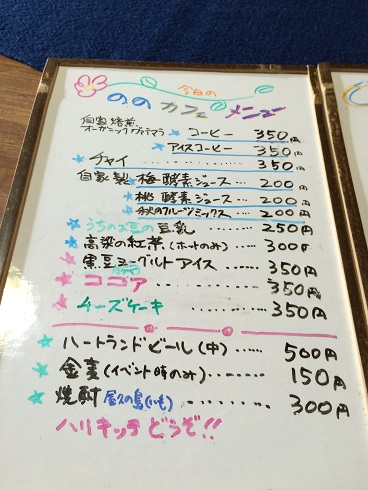 今日の
ののカフェメニュー
自家焙煎
オーガニックグァテマラ コーヒー 350円
アイスコーヒー 350円
チャイ ............ 350円
自家製 梅酵素ジュース .... 200円
桃酵素ジュース .... 200円
秋のフルーツミックス ... 200円
うちのお豆の豆乳 ...... 250円
高梁の紅茶(ホットのみ) .... 300円
黒豆ヨーグルトアイス ...... 350円
ココア ........ 350円
チーズケーキ ........ 350円
ハートランドビール(中) ...... 500円
金麦(イベント時のみ) ........ 150円
焼酎 屋久の島(いも) ...... 300円
ハリキッテどうぞ!!